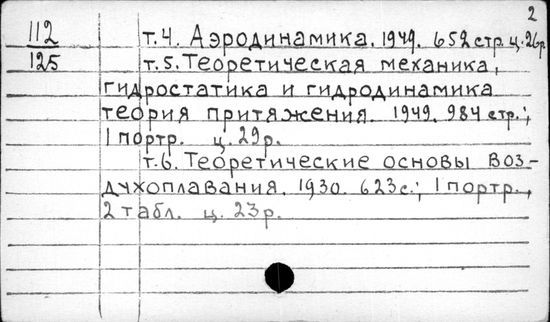 2
112 т.4. Аэродинамика. 1949. 652 стр. ц. 26р.
125 т.5. Теоретическая механика,
гидростатика и гидродинамика
теория притяжения. 1949. 984 стр.;
1 портр. ц. 29р.
т.6. Теоретические основы воз-
духоплавания. 1930. 623с.; 1 портр.,
2 табл. ц. 23р.